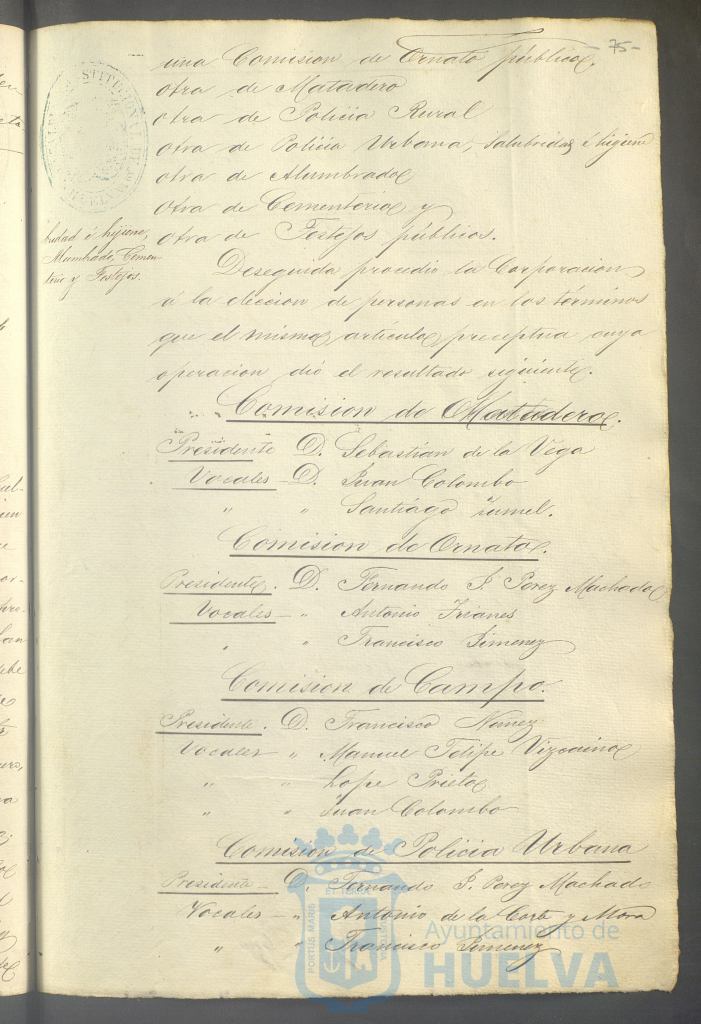 -75-
una Comision de Ornato público.
otra de Matadero
otra de Policia Rural
otra de Policia Urbana, Salubridad é higiene
otra de Alumbrado
otra de Cementerio y
otra de Festejos públicos.
bridad é higiene,
Alumbrado, Cemen-
terio y Festejos.
Deseguida procedió la Corporacion
á la eleccion de personas en los términos
que el mismo artículo preceptua cuya
operacion dió el resultado siguiente.
Comision de Matadero.
Presidente D. Sebastian de la Vega
Vocales - D. Juan Colombo
" " Santiago
Comision de Ornato.
Presidente. D. Fernando J. Perez Machado
Vocales - " Antonio Trianes
" " Francisco Jimenez
Comision de Campo.
Presidente. D. Francisco Nuñez
Vocales " Manuel Felipe Vizcaino
" " Lope Prieto
" " Juan Colombo
Comision de Policia Urbana
Presidente - D. Fernando J. Perez Machado
Vocales - " Antonio de la Corte y Mora
" " Francisco Jimenez
PORTUS MARIS ET TERRAE CUSTODIA
Ayuntamiento de
HUELVA